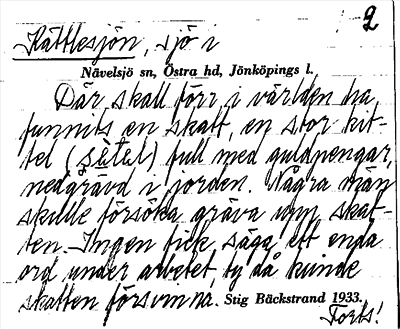 2
Kättlesjön, sjö i
Nävelsjö sn, Östra hd, Jönköpings l.
Där skall förr i världen ha
funnits en skatt, en stor kit-
tel (ſętęl) full med guldpengar,
nedgrävd i jorden. Några män
skulle försöka gräva upp skat-
ten. Ingen fick säga ett enda
ord under arbetet, ty då kunde
skatten försvinna. Stig Bäckstrand 1933.
Forts!